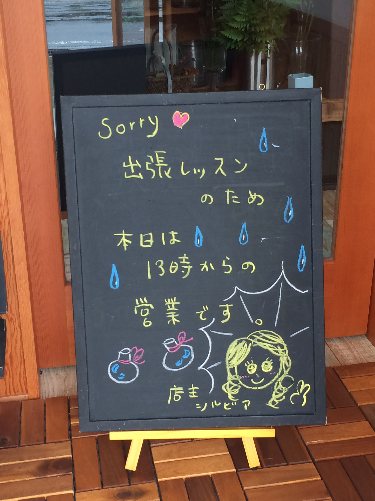 Sorry
出張レッスン
のため
本日は
13時からの
営業です
店主
シルビア